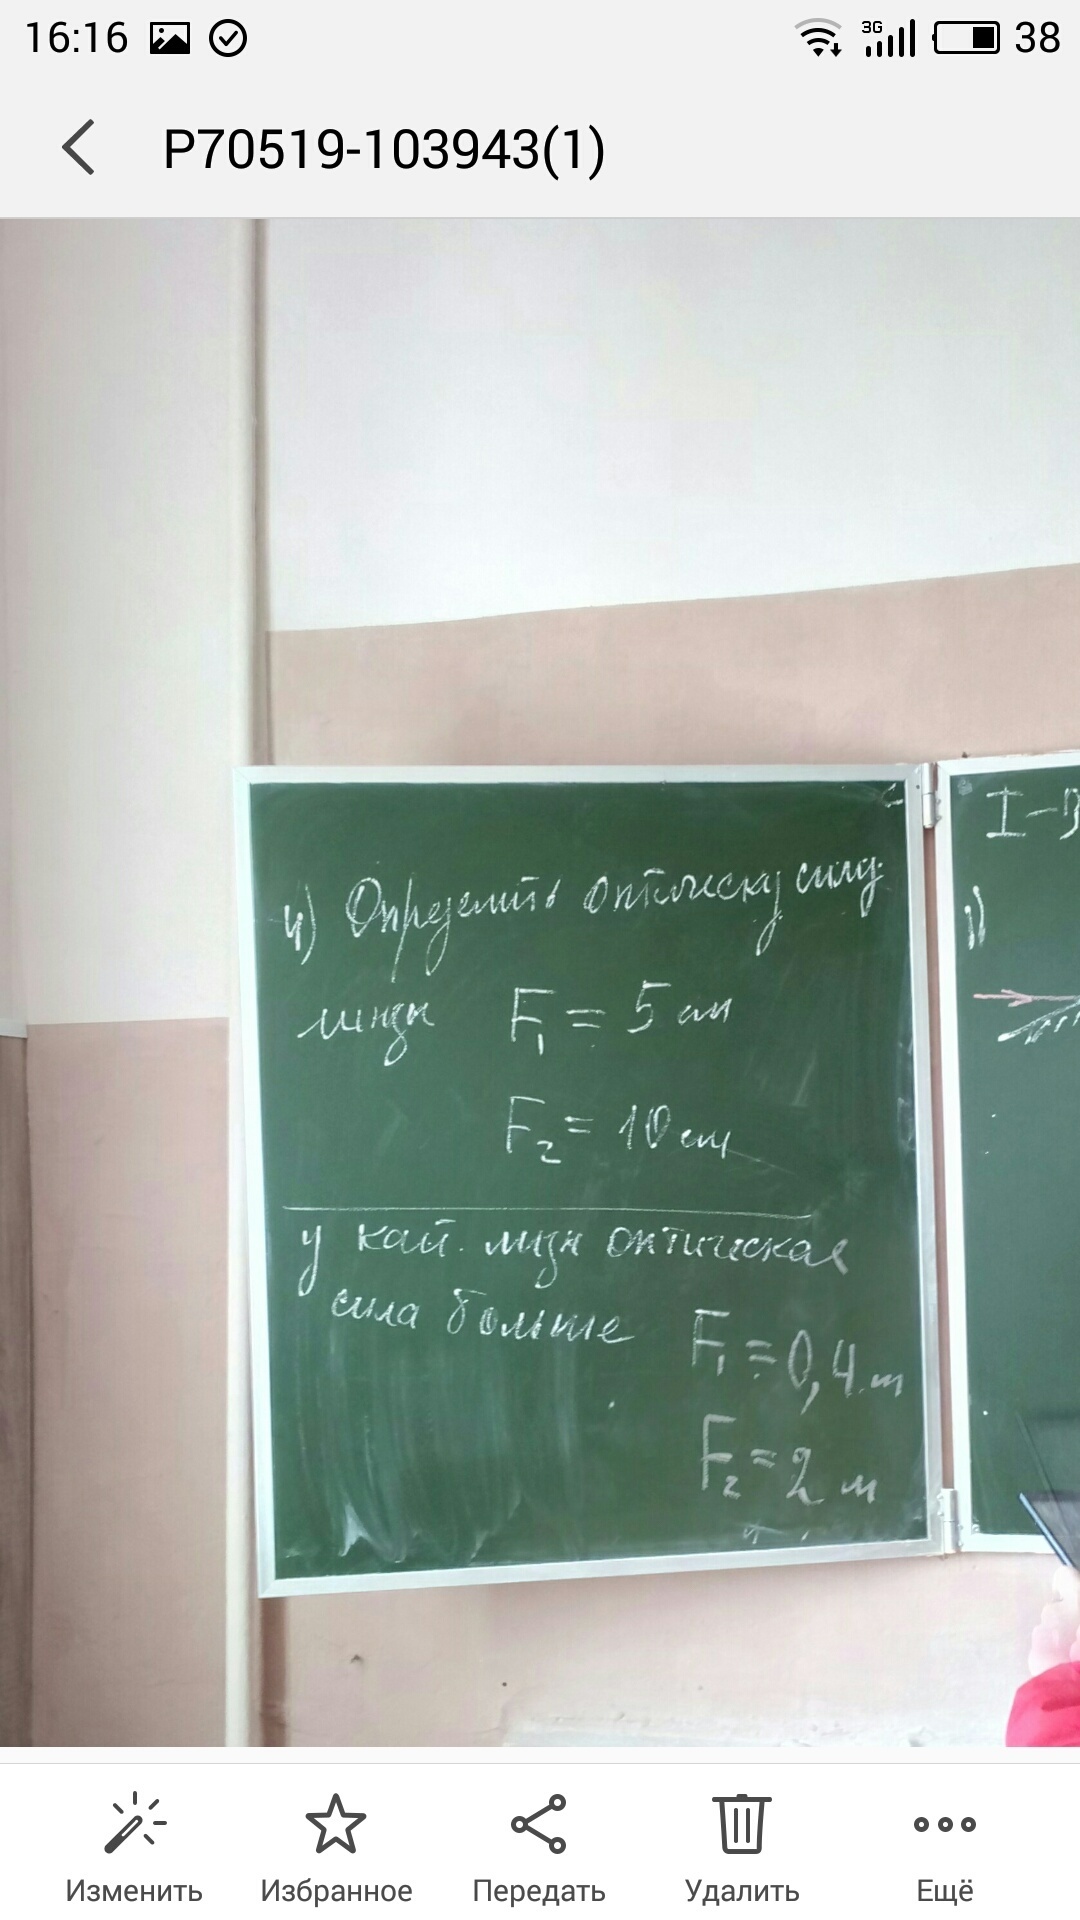 16:16 3G 38
P70519-103943(1)
4) Определить оптическу силу
линзы F₁ = 5 см
F₂ = 10 см
у кай. линзы оптическая
сила больше F₁ = 0,4 м
F₂ = 2 м
I-
1)
Изменить Избранное Передать Удалить Ещё